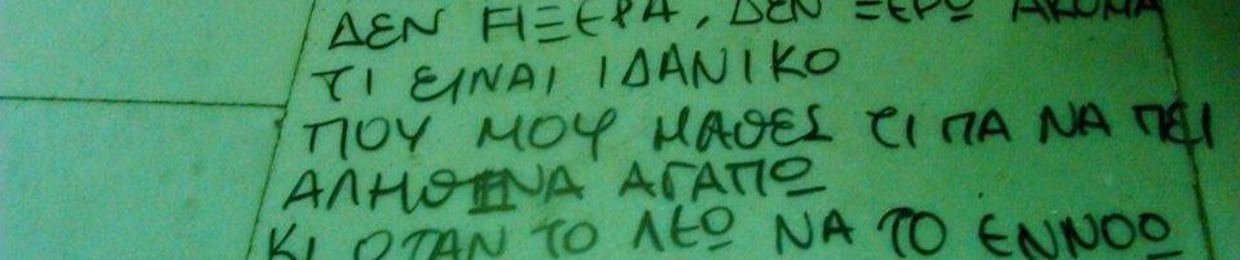 ΔΕΝ ΗΞΕΡΑ, ΔΕΝ ΞΕΡΩ ΑΚΟΜΑ
ΤΙ ΕΙΝΑΙ ΙΔΑΝΙΚΟ
ΠΟΥ ΜΟΥ ΜΑΘΕΣ ΤΙ ΠΑ ΝΑ ΠΕΙ
ΑΛΗΘΙΝΑ ΑΓΑΠΩ
ΚΙ ΟΤΑΝ ΤΟ ΛΕΩ ΝΑ ΤΟ ΕΝΝΟΩ